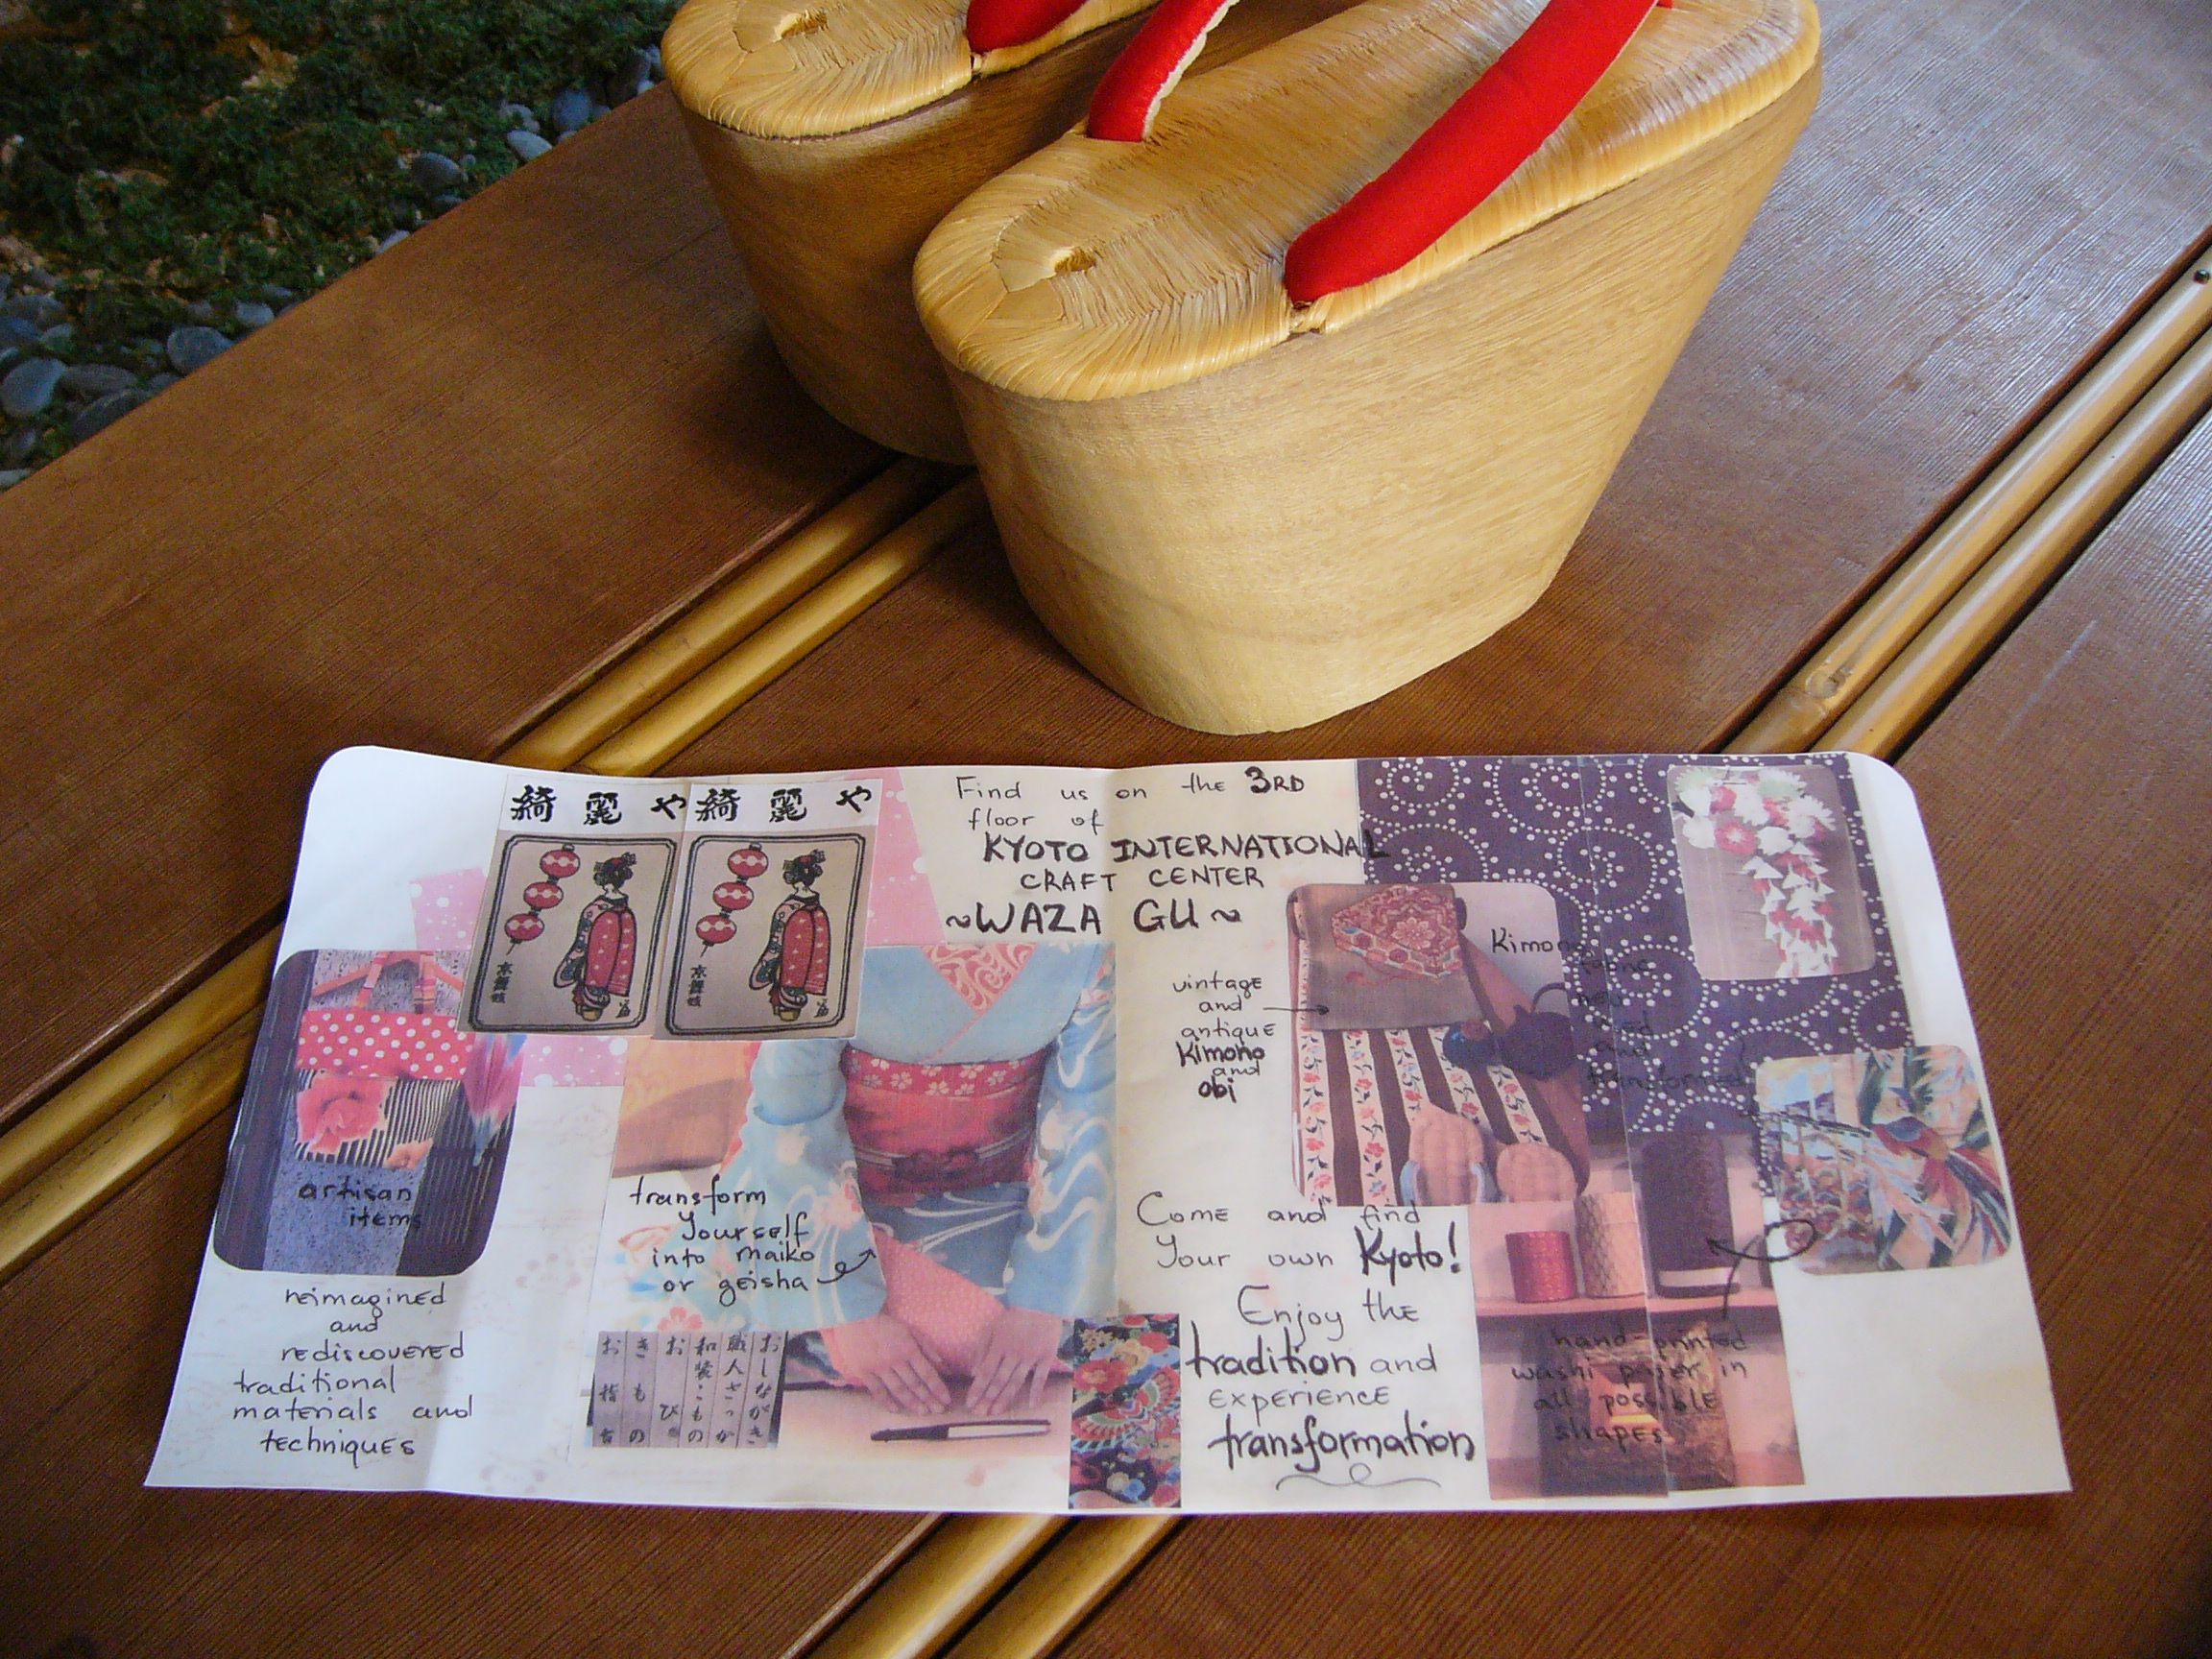 綺麗や
綺麗や
京舞妓
京舞妓
Find us on the 3RD
floor of
KYOTO INTERNATIONAL
CRAFT CENTER
~WAZA GU~
vintage
and
antique
Kimono
and
obi
Kimono
and
transformed
artisan
items
reimagined
and
rediscovered
traditional
materials and
techniques
transform
yourself
into maiko
or geisha
おしながき
職人ざっか
和装こもの
おび。
きもの
お指
Come and find
Your own Kyoto!
Enjoy the
tradition and
experience
transformation
hand-printed
washi paper in
all possible
shapes